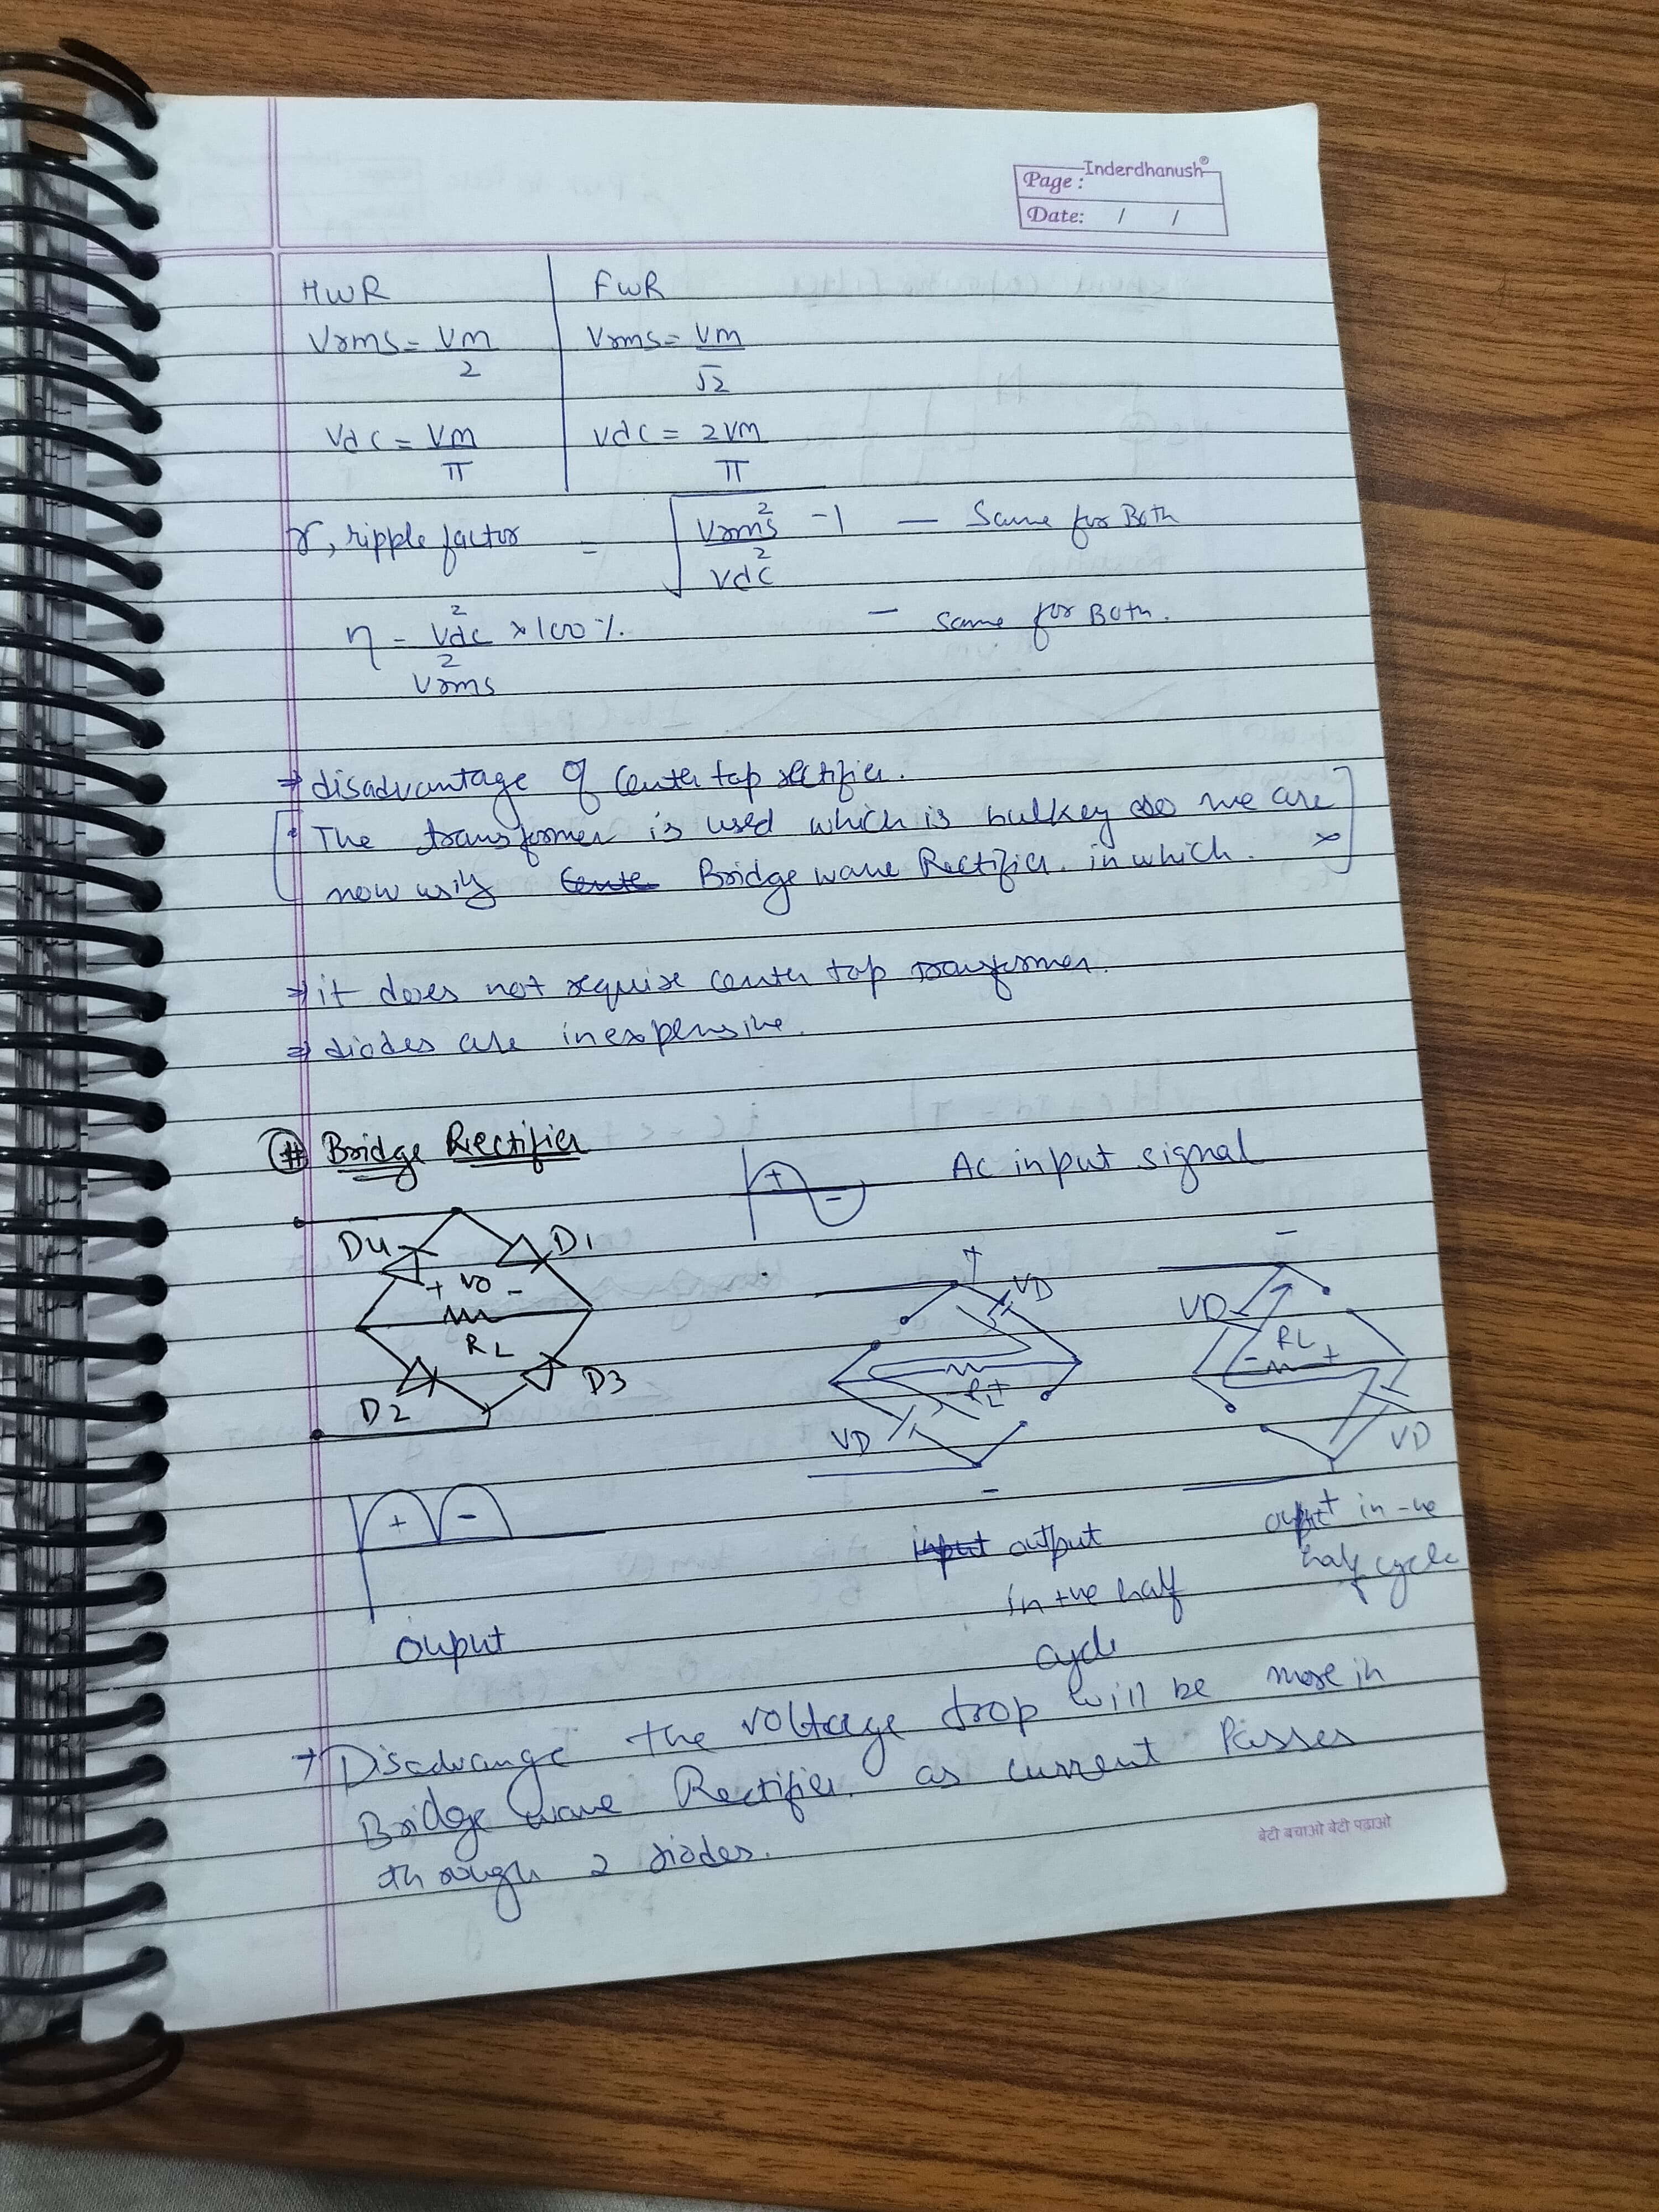 Inderdhanush®
Page:
Date: / /
HWR FWR
Vrms = Vm/2 Vrms = Vm/√2
Vdc = Vm/π Vdc = 2Vm/π
γ, ripple factor = √(Vrms²/Vdc² -1) — Same for Both
η = Vdc²/Vrms² × 100% — Same for Both.
⇒ disadvantage of Center tap rectifier.
[• The transformer is used which is bulkey so we are
now using Cente Bridge wave Rectifier. in which. ]
⇒ it does not require center tap transformer.
⇒ diodes are inexpensive.
# Bridge Rectifier
+ - AC input signal
D4 D1
+ VO -
RL
D2 D3
+ VD
RL +
VD
-
-
VD
RL
- +
VD
+
+ -
ouput
input output
in +ve half
cycle
output in -ve
half cycle
→ Disadvange the voltage drop will be more in
Bridge wave Rectifier. as current Passes
through 2 diodes.
बेटी बचाओ बेटी पढ़ाओ